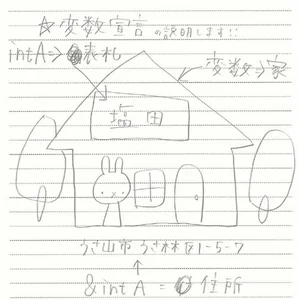 ☆変数宣言の説明します!!
int A => 表札
変数=>家
塩田
うさ山市 うさ林区1-5-7
&int A = 住所